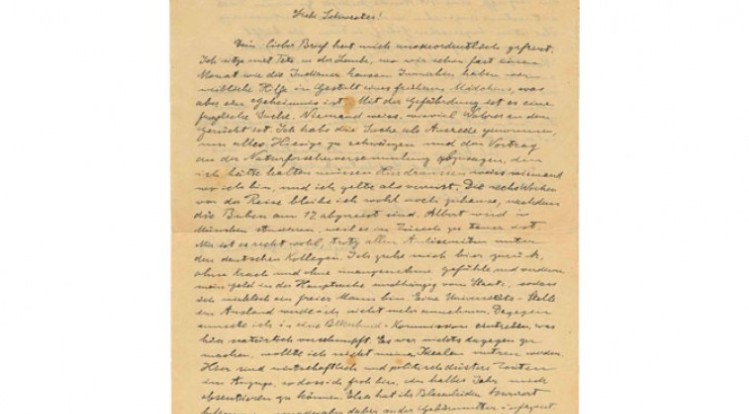 Liebe Schwester!
Dein lieber Brief hat mich ausserordentlich gefreut.
Ich sitze mit Tete in der Laube, wo wir schon fast einen
Monat wie die Indianer hausen. Inzwischen haben wir
weibliche Hilfe in Gestalt eines Mädchens, was
aber ein Geheimnis ist. Mit der Gefährdung ist es eine
fragliche Sache. Niemand weiss, wieviel Wahres an dem
Gerücht ist. Ich habe die Sache als Ausrede genommen,
um alles Hiesige zu schwänzen und den Vortrag
an der Naturforscherversammlung abzusagen, den
ich hätte halten müssen. Hier weiss niemand
wo ich bin, und ich gelte als verreist. Die sechs Wochen
vor der Reise bleibe ich wohl noch zuhause, nachdem
die Buben am 12 abgereist sind. Albert wird in
München studieren, weil es in Zürich zu teuer ist.
Mir ist es recht wohl, trotz allen Antisemiten unter
den deutschen Kollegen. Ich gehe mich hier zurück,
ohne Krach und ohne unangenehme Gefühle und verdiene
mein Geld in der Hauptsache unabhängig vom Staat, sodass
ich wirklich ein freier Mann bin. Eine Universitäts-Stelle
im Ausland werde ich nicht mehr annehmen. Dagegen
musste ich in eine Völkerbund-Kommission eintreten, was
hier natürlich verschnupft. Es war nichts dagegen zu
machen, wollte ich nicht meinen Idealen untreu werden.
Hier sind wirtschaftlich und politisch düstere Zeiten
im Anzuge, sodass ich froh bin, ein halbes Jahr mich
absentieren zu können. Elsa hat ihr Blasenleiden